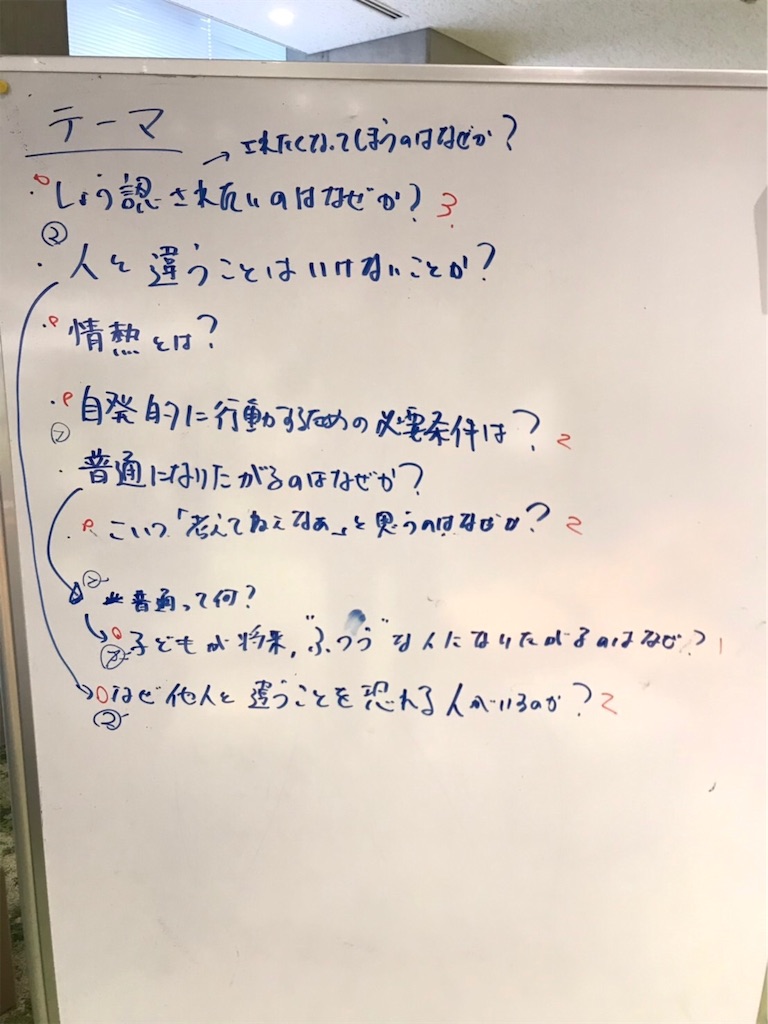 テーマ
→されたくなってしまうのはなぜか?
・しょう認されたいのはなぜか? 3
②
・人と違うことはいけないことか?
・情熱とは?
・自発的に行動するための必要条件は? 2
・普通になりたがるのはなぜか?
こいつ「考えてねえなぁ」と思うのはなぜか? 2
普通って何?
子どもが将来,"ふつう"な人になりたがるのはなぜ? 1
なぜ他人と違うことを恐れる人がいるのか? 2
②